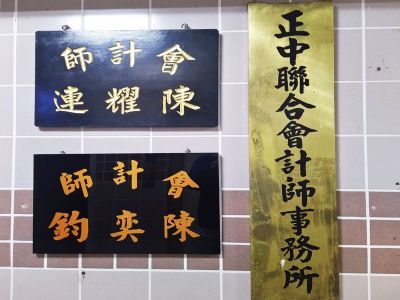 正中聯合會計師事務所
會計師
陳耀連
會計師
陳奕鈞